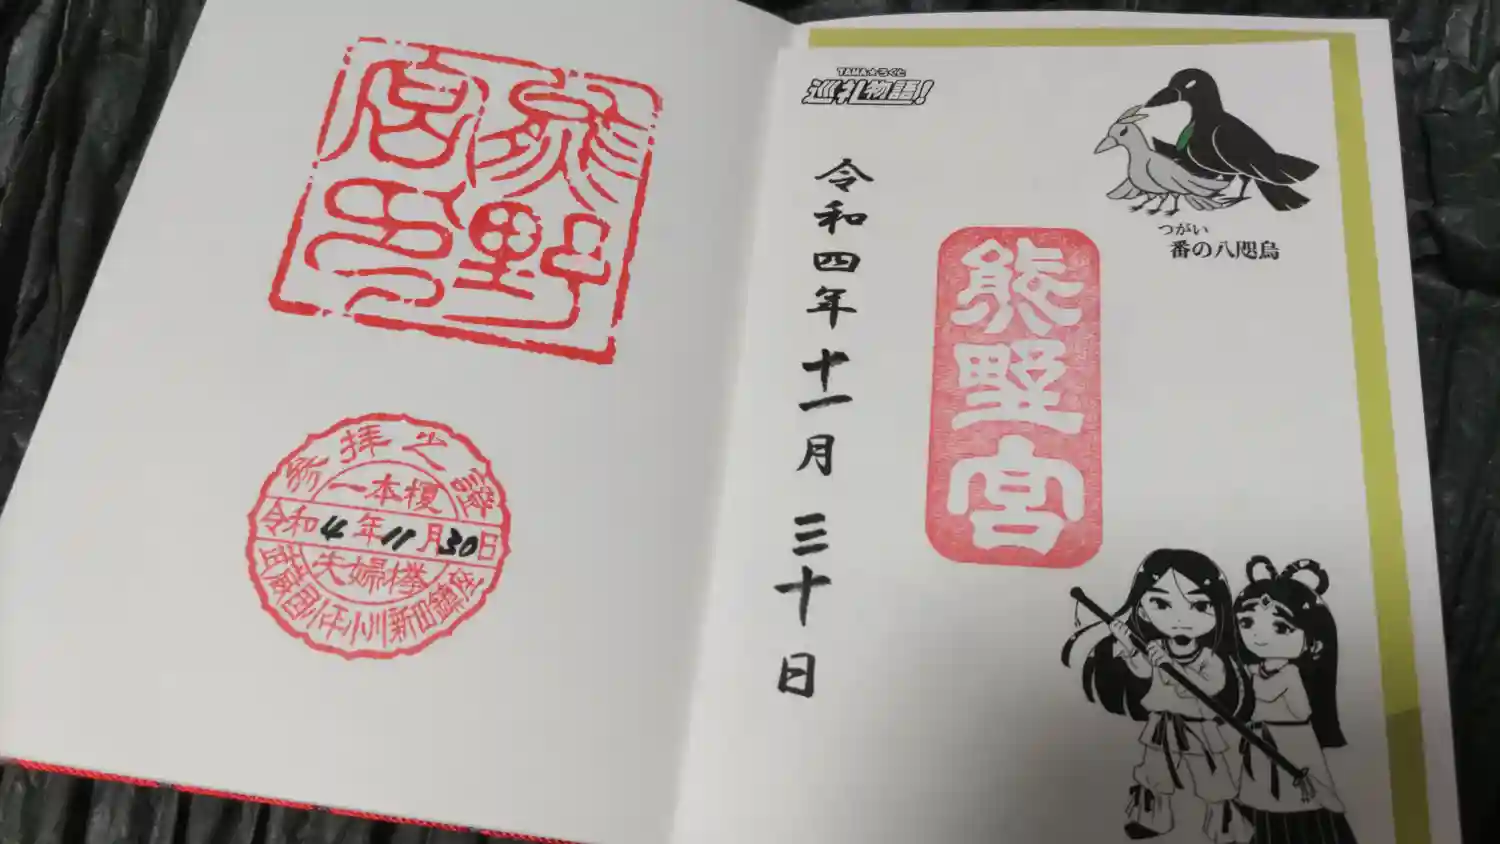 熊野
宮印
参拝之證
一本榎
令和4年11月30日
夫婦欅
武蔵国小平小川新田鎮座
TAMA★ろくと
巡礼物語!
つがい
番の八咫烏
熊墅宮
令和四年十一月三十日